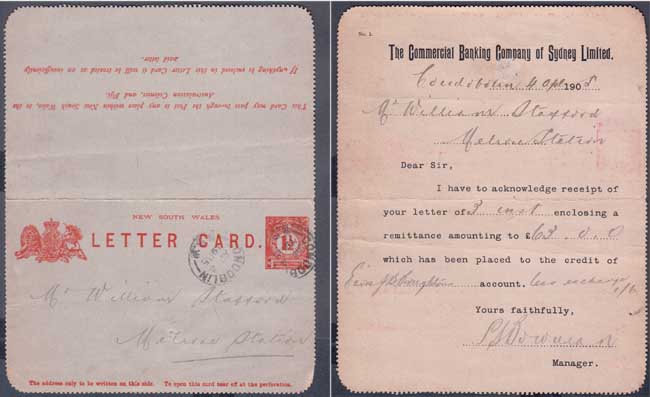 If anything be enclosed in this Letter Card it will be treated as an insufficiently
paid letter.
This Card may pass through the Post to any place within New South Wales, to the
Australasian Colonies, and Fiji.
NEW SOUTH WALES
LETTER CARD.
1½
Mr William Stafford
Melrose Station
The address only to be written on this side. To open this card tear off at the perforation.
No. 1.
The Commercial Banking Company of Sydney Limited.
Condobolin 4 Apl 1905
Mr William Stafford
Melrose Station
Dear Sir,
I have to acknowledge receipt of
your letter of 3 inst enclosing a
remittance amounting to £63.0.0
which has been placed to the credit of
account. less exchange
Yours faithfully,
Manager.